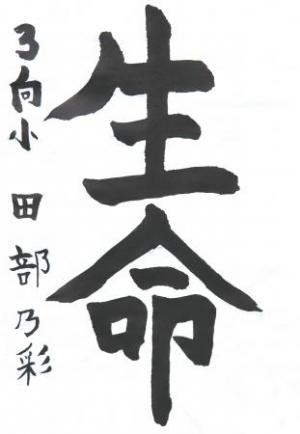 生命
弓向小 田部乃彩